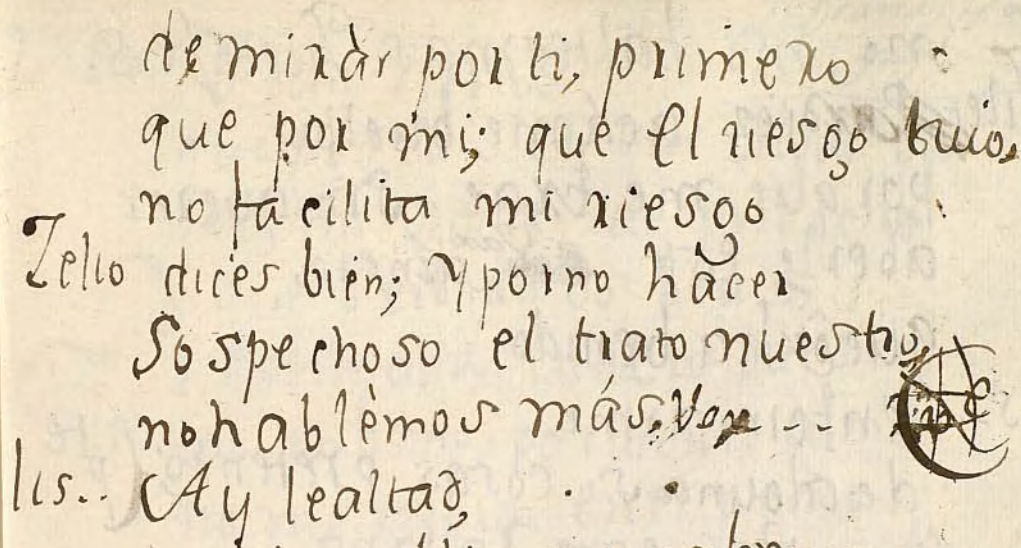 de miràr por ti, primero
que por mi; que el riesgo tuio,
no facilita mi riesgo
Zelio dices bien; y por no hacer
Sospechoso el trato nuestro,
no hablèmos más.
lis.. Ay lealtad,